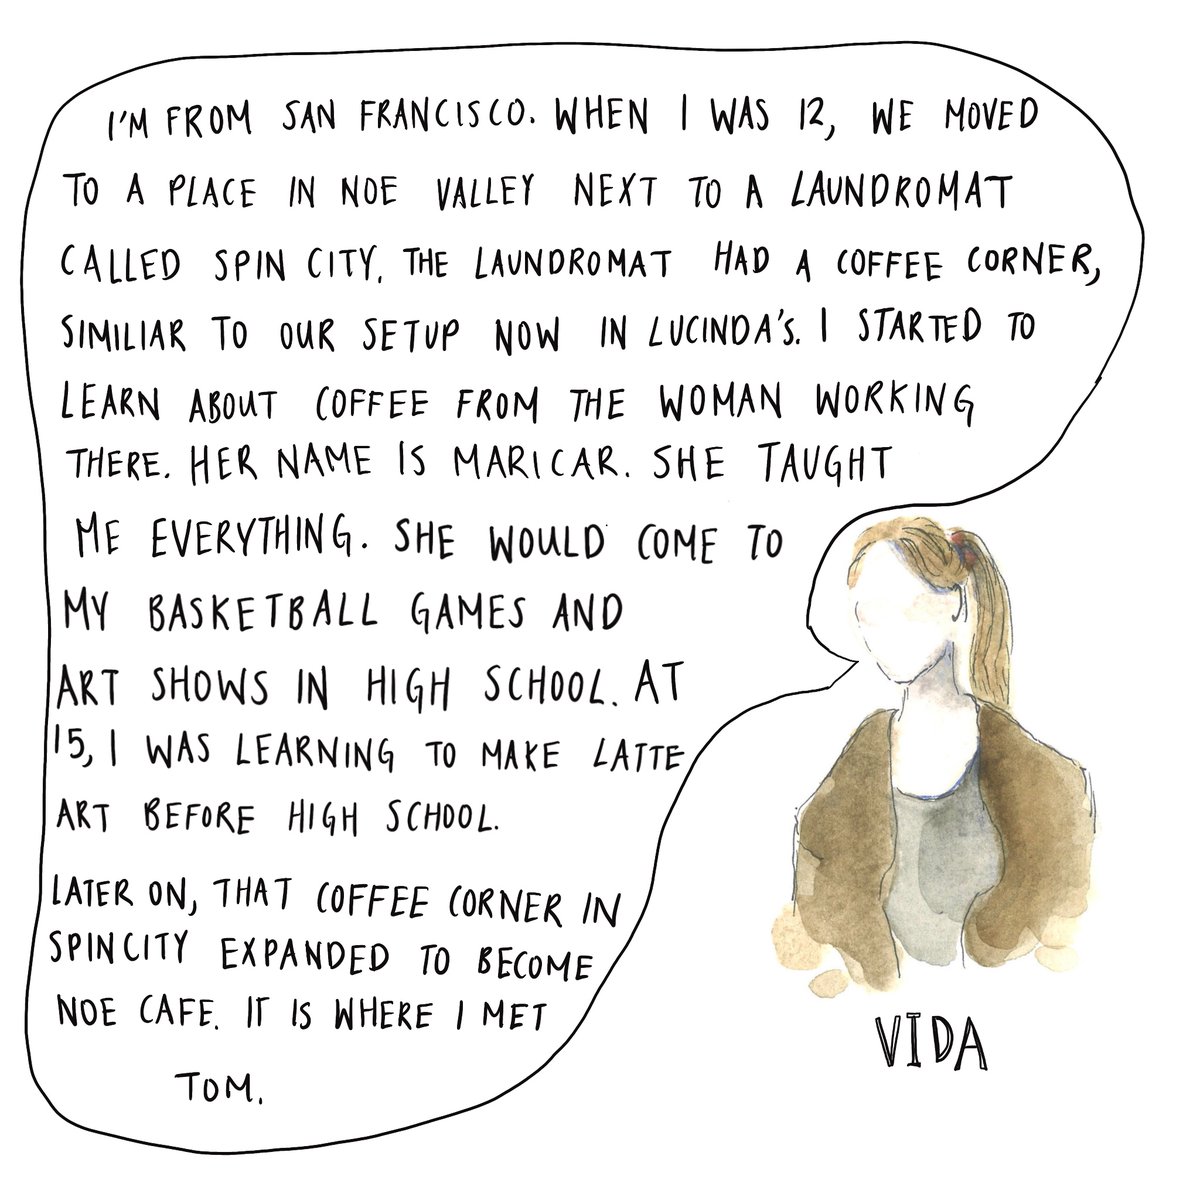 I'M FROM SAN FRANCISCO. WHEN I WAS 12, WE MOVED
TO A PLACE IN NOE VALLEY NEXT TO A LAUNDROMAT
CALLED SPIN CITY. THE LAUNDROMAT HAD A COFFEE CORNER,
SIMILIAR TO OUR SETUP NOW IN LUCINDA'S. I STARTED TO
LEARN ABOUT COFFEE FROM THE WOMAN WORKING
THERE. HER NAME IS MARICAR. SHE TAUGHT
ME EVERYTHING. SHE WOULD COME TO
MY BASKETBALL GAMES AND
ART SHOWS IN HIGH SCHOOL. AT
15, I WAS LEARNING TO MAKE LATTE
ART BEFORE HIGH SCHOOL.
LATER ON, THAT COFFEE CORNER IN
SPINCITY EXPANDED TO BECOME
NOE CAFE. IT IS WHERE I MET
TOM.
VIDA